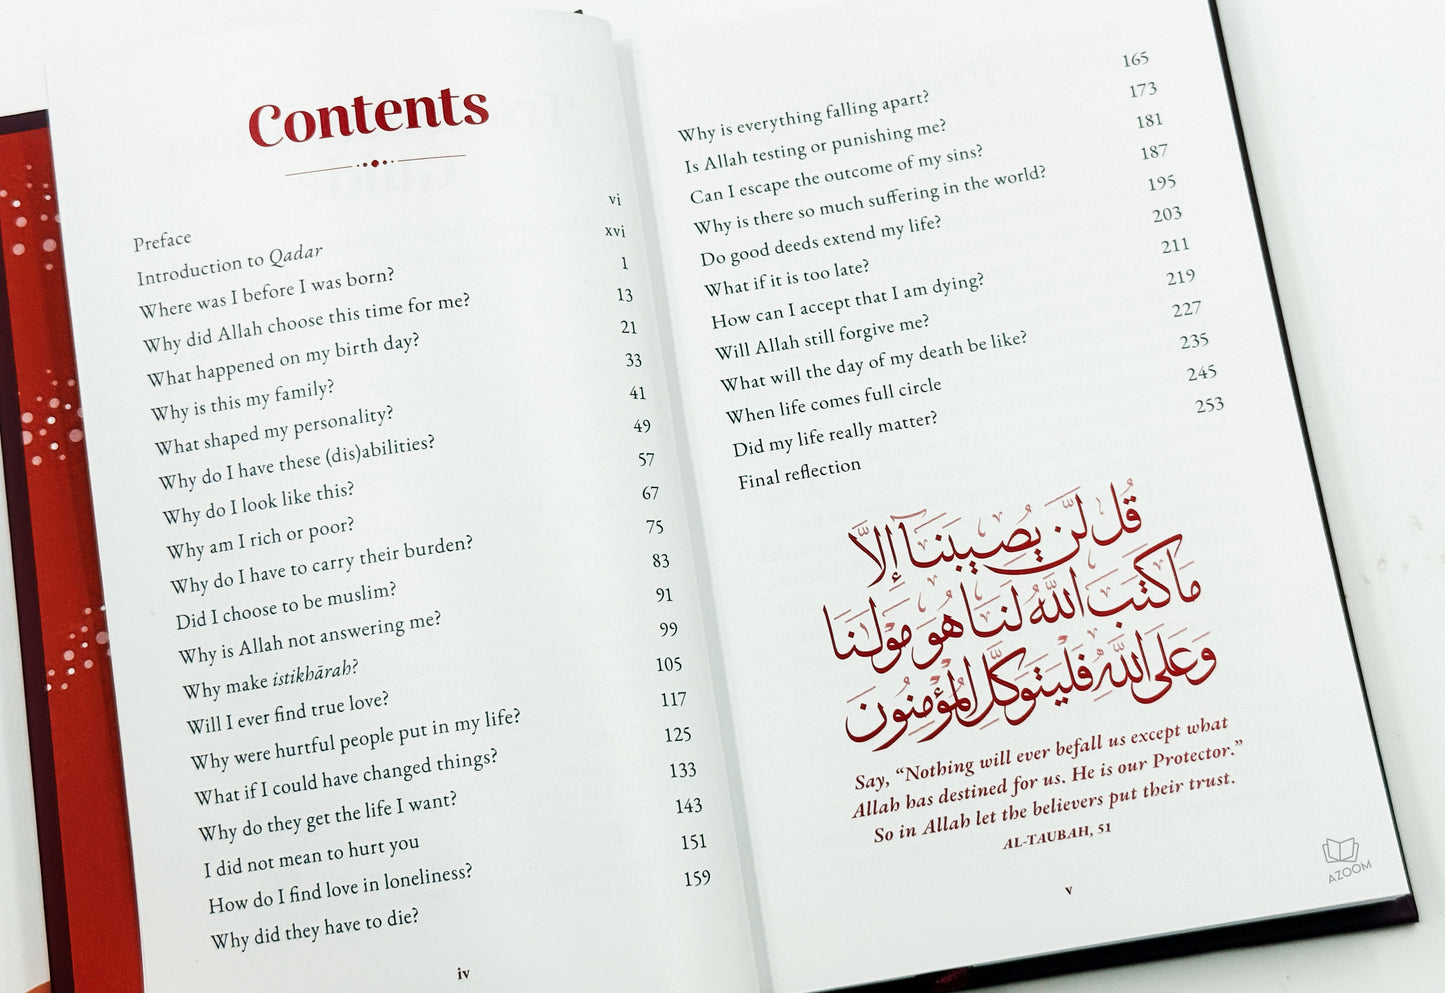 Contents
Preface vi
Introduction to Qadar xvi
Where was I before I was born? 1
Why did Allah choose this time for me? 13
What happened on my birth day? 21
Why is this my family? 33
What shaped my personality? 41
Why do I have these (dis)abilities? 49
Why do I look like this? 57
Why am I rich or poor? 67
Why do I have to carry their burden? 75
Did I choose to be muslim? 83
Why is Allah not answering me? 91
Why make istikhārah? 99
Will I ever find true love? 105
Why were hurtful people put in my life? 117
What if I could have changed things? 125
Why do they get the life I want? 133
I did not mean to hurt you 143
How do I find love in loneliness? 151
Why did they have to die? 159
iv
Why is everything falling apart? 165
Is Allah testing or punishing me? 173
Can I escape the outcome of my sins? 181
Why is there so much suffering in the world? 187
Do good deeds extend my life? 195
What if it is too late? 203
How can I accept that I am dying? 211
Will Allah still forgive me? 219
What will the day of my death be like? 227
When life comes full circle 235
Did my life really matter? 245
Final reflection 253
قُل لَّن يُصِيبَنَآ إِلَّا
مَا كَتَبَ اللَّهُ لَنَا هُوَ مَوْلَىٰنَا
وَعَلَى اللَّهِ فَلْيَتَوَكَّلِ الْمُؤْمِنُونَ
Say, “Nothing will ever befall us except what
Allah has destined for us. He is our Protector.”
So in Allah let the believers put their trust.
AL-TAUBAH, 51
v
AZOOM